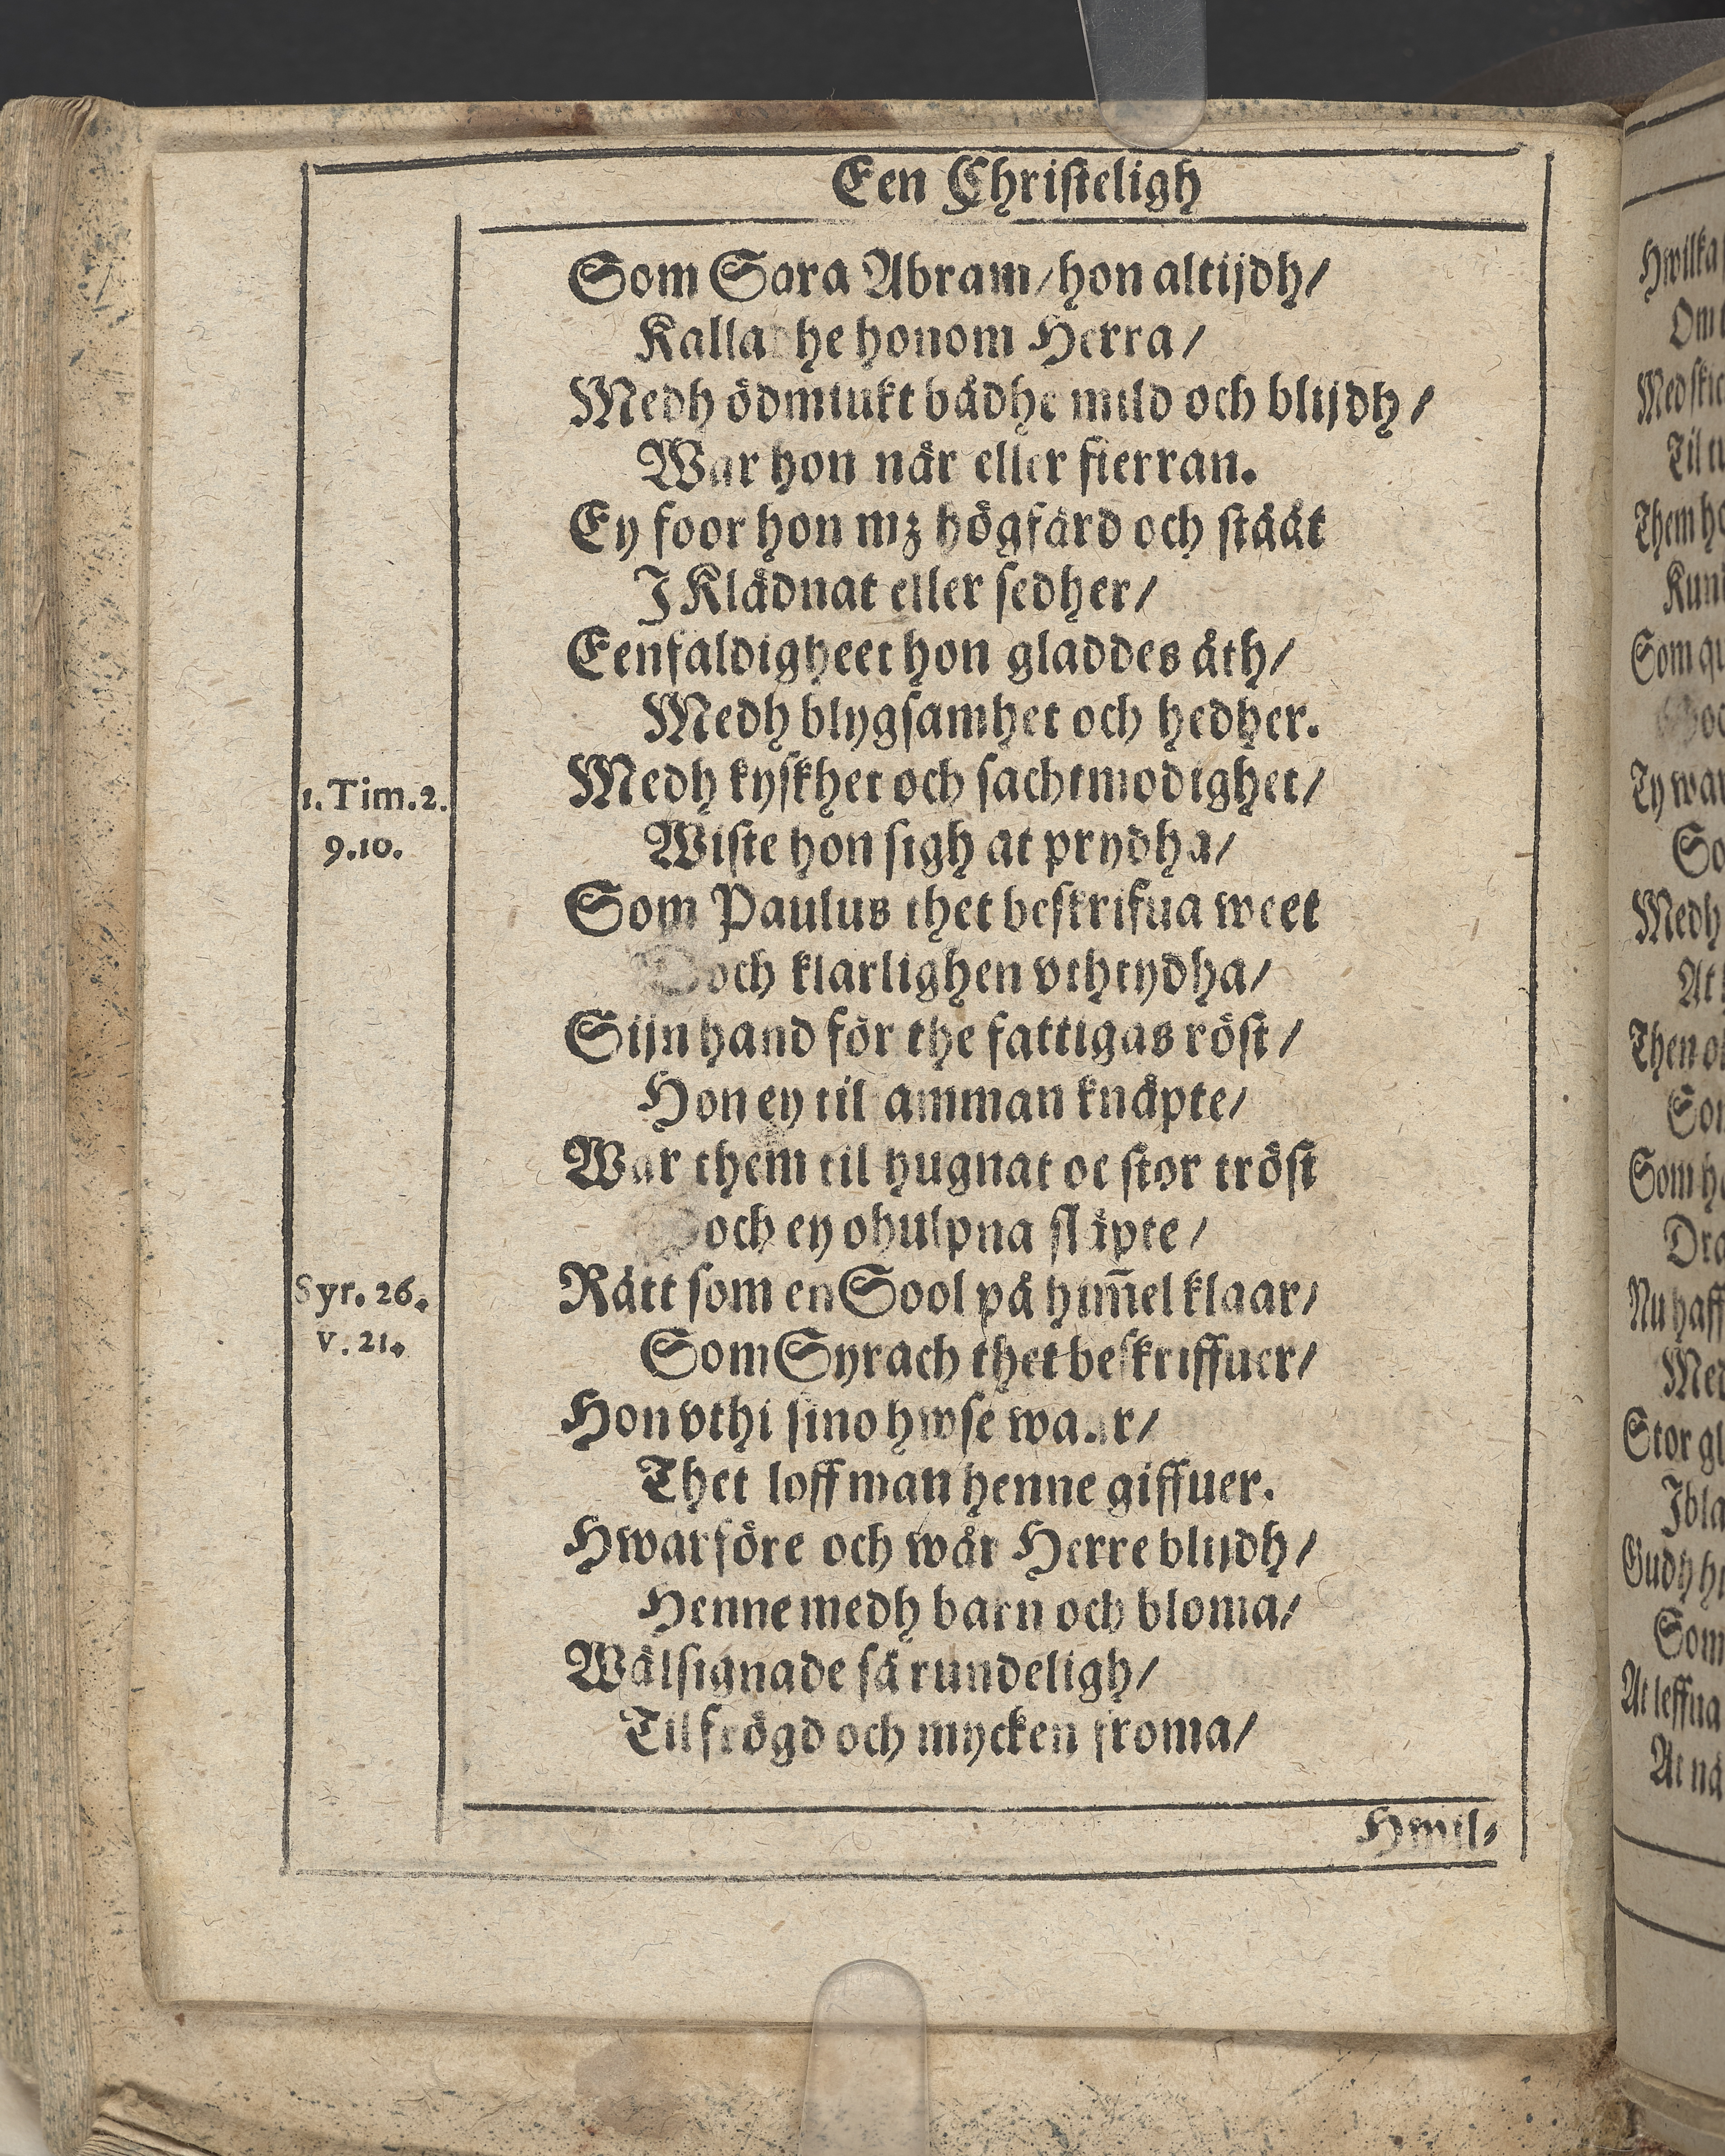 Een Christeligh
Som Sara Abram/hon altijdh/
Kalladhe honom Herra/
Medh ödmiukt bådhe mild och blijdh/
War hon när eller fierran.
Ey foor hon mz högfärd och stäåt
J Klädnat eller sedher/
Eenfaldigheet hon gladdes åth/
Medh blygsamhet och hedher.
Medh kyskhet och sachtmodighet/
1. Tim. 2.
9.10.
Wiste hon sigh at prydha/
Som Paulus thet beskrifua weet
Doch klarlighen vthtydha/
Sijn hand för the fattigas röst/
Hon ey til samman knäpte/
War them til hugnat oc stor tröst
Doch ey ohulpna släpte/
Rätt som en Sool på him̅el klaar/
Syr. 26.
v. 21.
Som Syrach thet beskriffuer/
Hon vthi sino hwse waar/
Thet loff man henne giffuer.
Hwarföre och wår Herre blijdh/
Henne medh barn och bloma/
Wälsignade så rundeligh/
Til frögd och mycken froma/
Hwil-